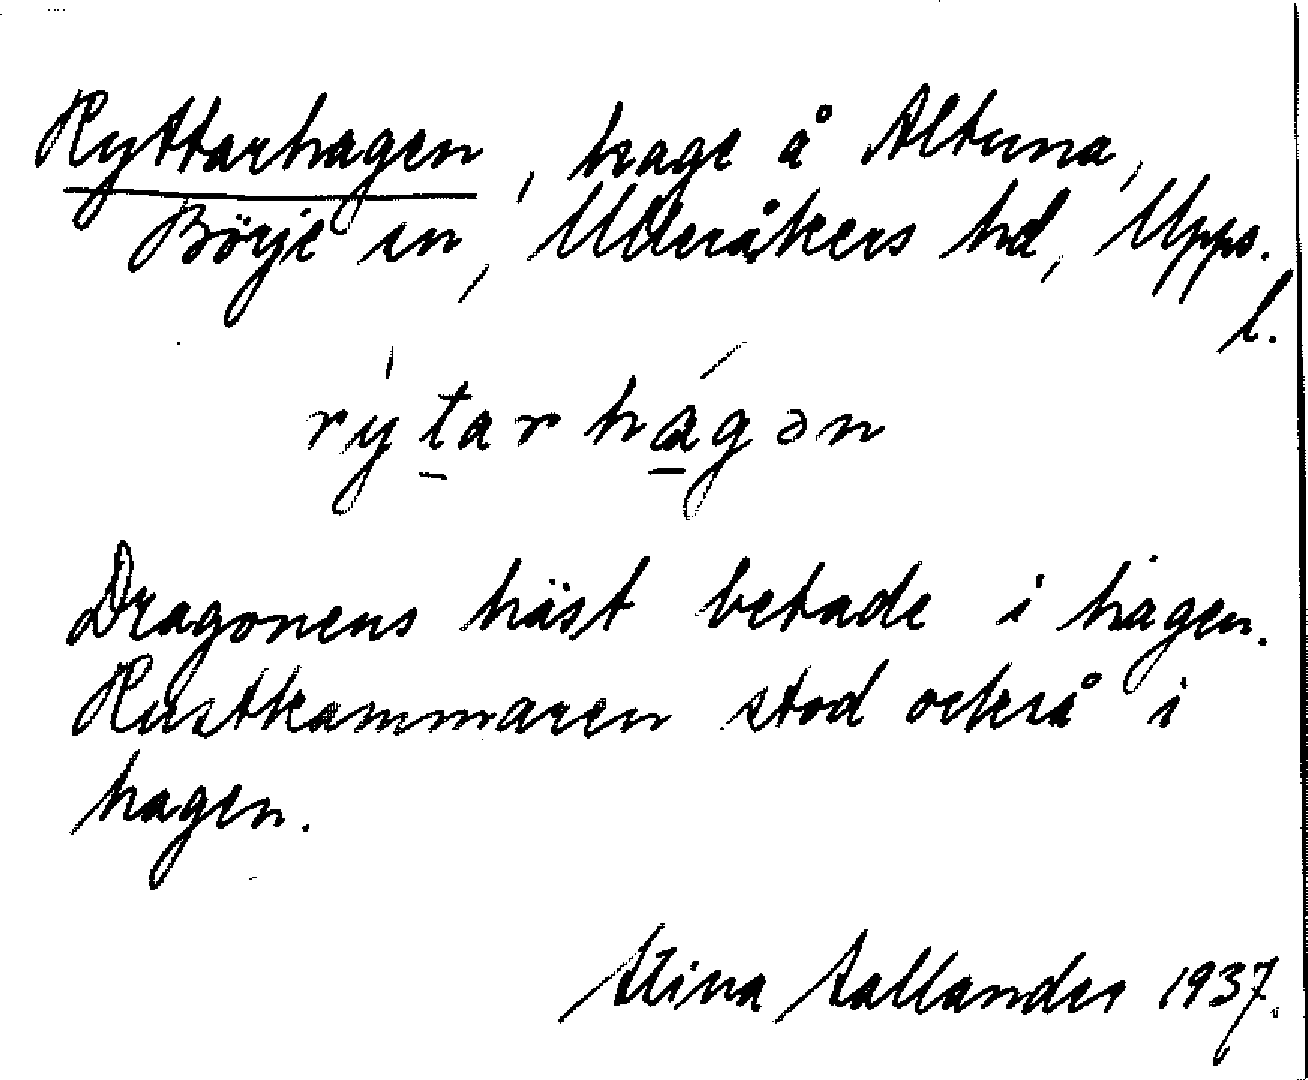 Ryttarhagen, hage å Altuna,
Börje sn, Ulleråkers hd, Upps.
l.
rýtarhágən
Dragonens häst betade i hagen.
Rustkammaren stod också i
hagen.
Stina 1937.